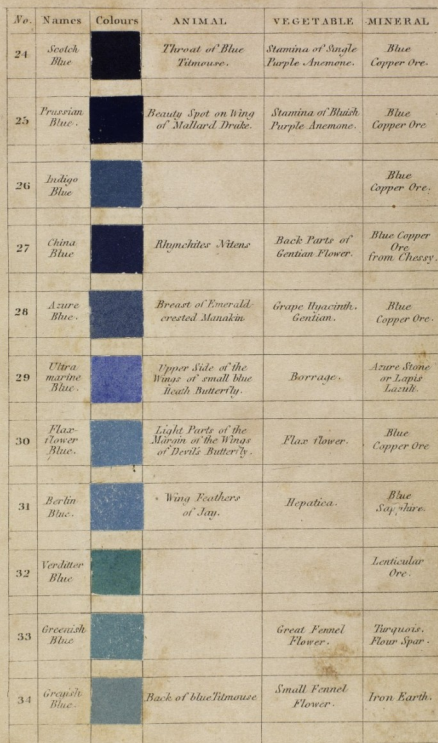 No. Names Colours ANIMAL VEGETABLE MINERAL
24 Scotch Blue Throat of Blue Titmouse. Stamina of Single Purple Anemone. Blue Copper Ore.
25 Prussian Blue. Beauty Spot on Wing of Mallard Drake. Stamina of Bluish Purple Anemone. Blue Copper Ore
26 Indigo Blue Blue Copper Ore.
27 China Blue Rhynchites Nitens Back Parts of Gentian Flower. Blue Copper Ore from Chessy.
28 Azure Blue. Breast of Emerald-crested Manakin Grape Hyacinth. Gentian. Blue Copper Ore.
29 Ultramarine Blue. Upper Side of the Wings of small blue Heath Butterfly. Borrage. Azure Stone or Lapis Lazuli.
30 Flax-flower Blue. Light Parts of the Margin of the Wings of Devil's Butterfly. Flax flower. Blue Copper Ore
31 Berlin Blue. Wing Feathers of Jay. Hepatica. Blue Sapphire.
32 Verditter Blue Lenticular Ore.
33 Greenish Blue Great Fennel Flower. Turquois. Flour Spar.
34 Greyish Blue. Back of blue Titmouse Small Fennel Flower. Iron Earth.